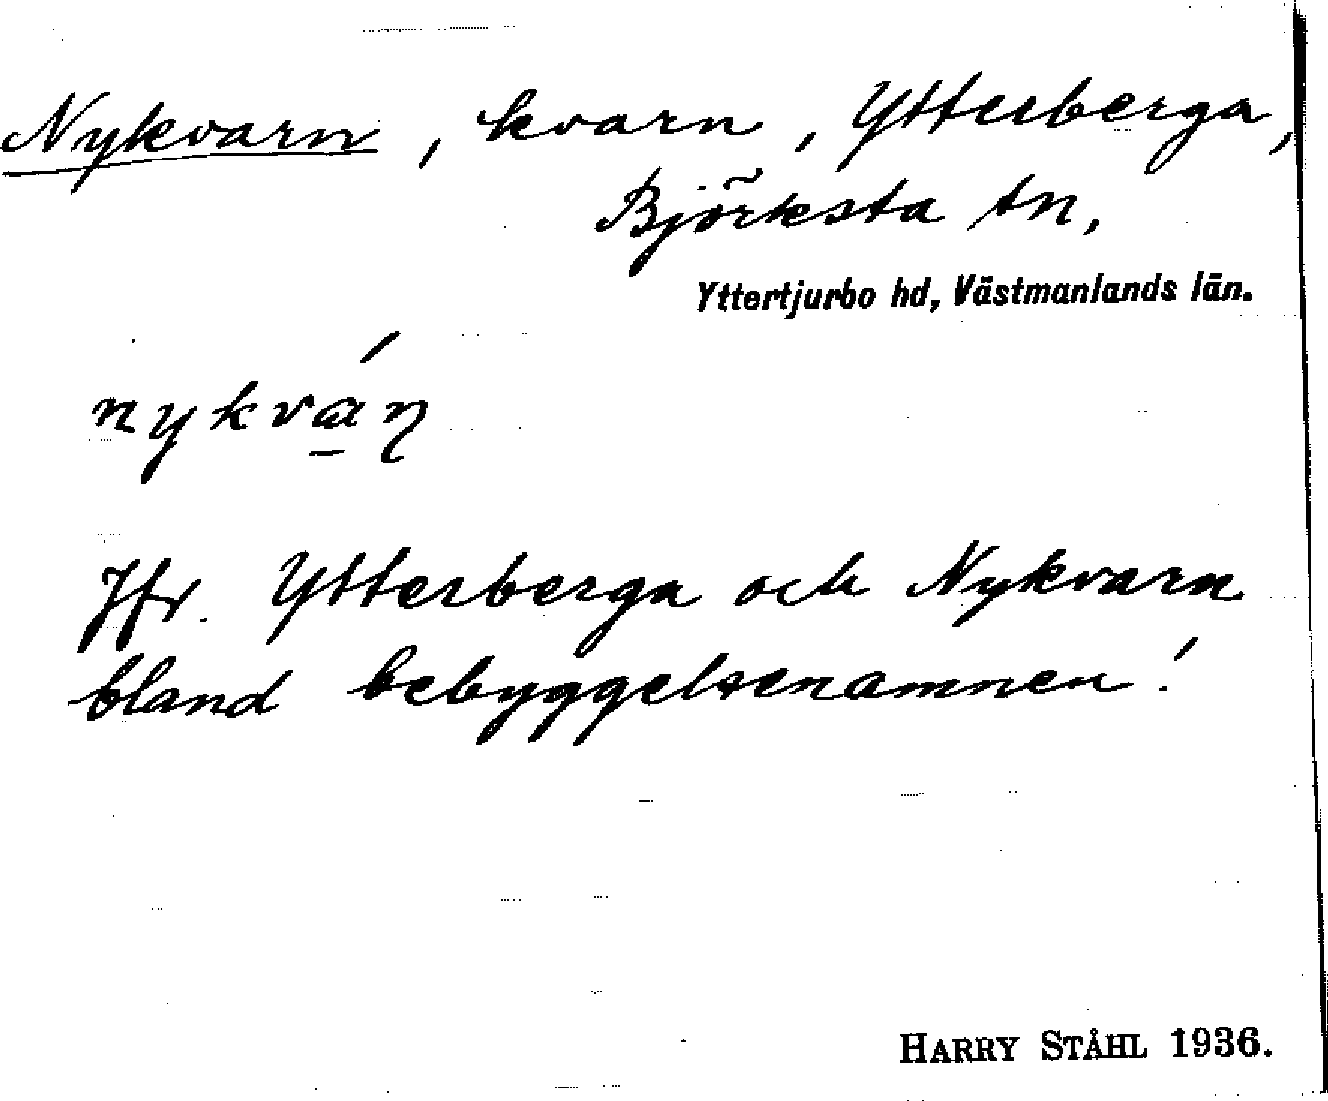 Nykvarn, kvarn, Ytterberga,
Björksta sn,
Yttertjurbo hd, Västmanlands län.
nykvá̱ɳ
Jfr. Ytterberga och Nykvarn
bland bebyggelsenamnen!
HARRY STÅHL 1936.